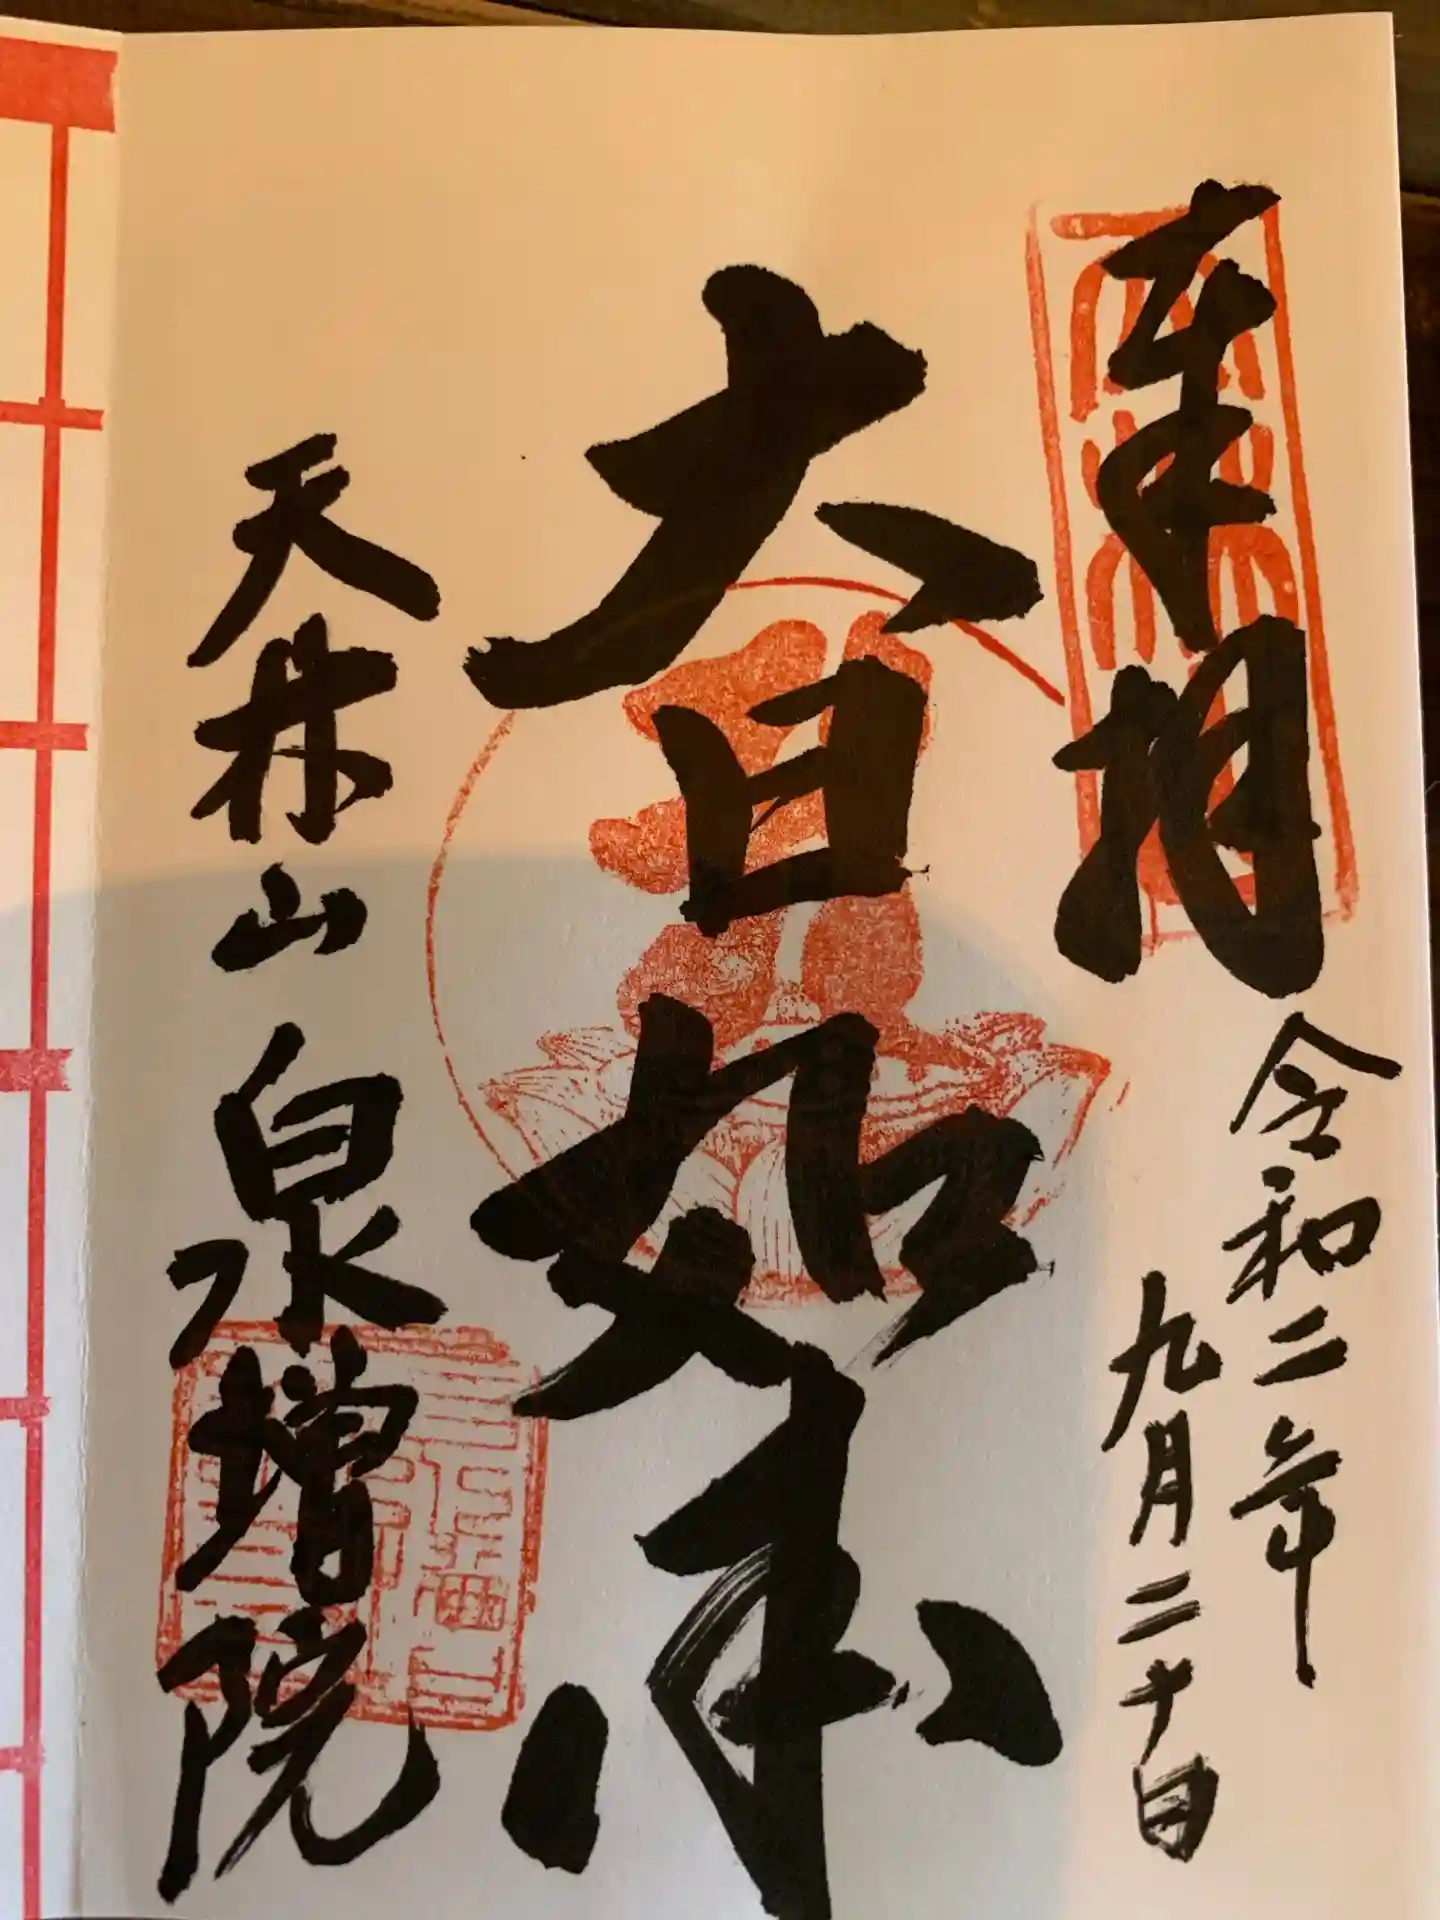 奉拝
令和二年
九月二十日
大日如来
天林山 泉増院